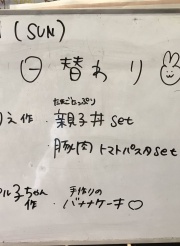 (SUN)
日替わり
たまごとっぷり
え作・親子丼 set
・豚肉 トマトパスタ set
子ちゃん 手作りの
作・バナナケーキ